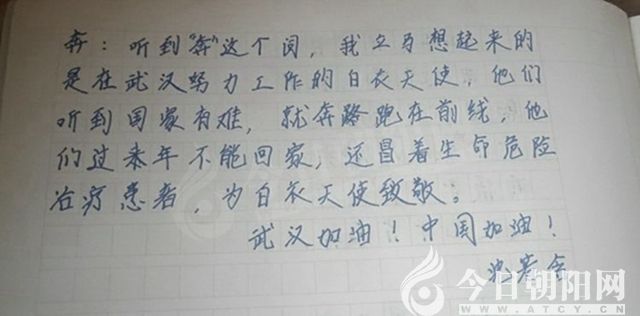 奔：听到"奔"这个词，我立马想起来的
是在武汉努力工作的白衣天使，他们
听到国家有难，就奔路跑在前线，他
们过来年不能回家，还冒着生命危险
治疗患者，为白衣天使致敬。
武汉加油！中国加油！
今日朝阳网
WWW.ATCY.CN